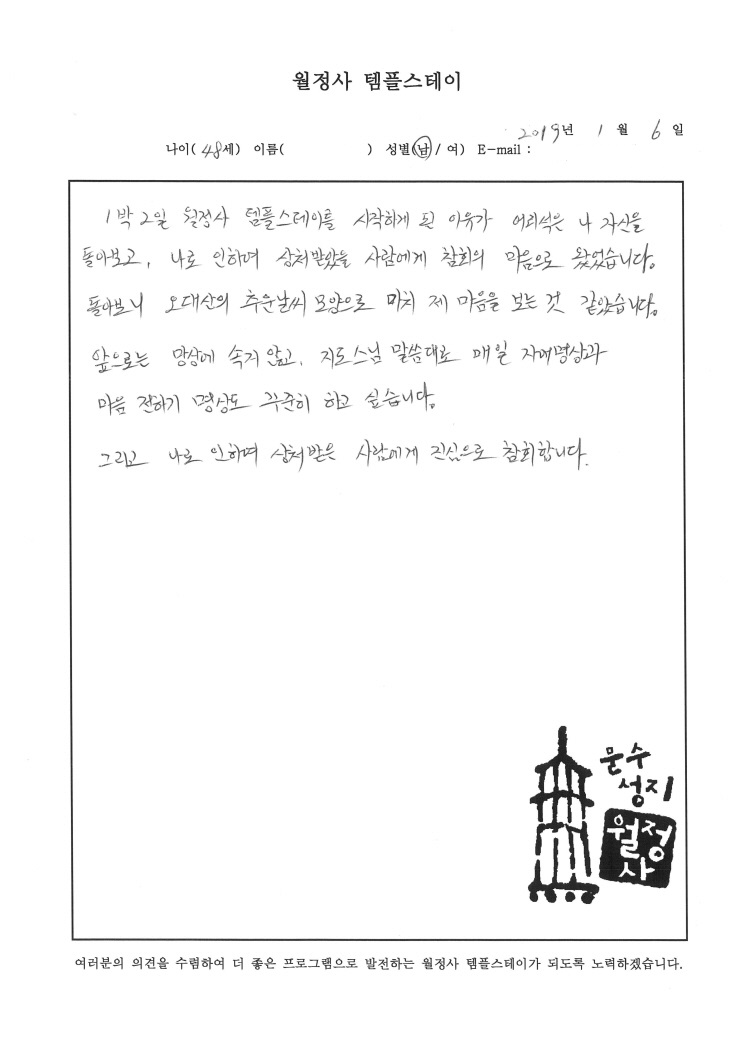 월정사 템플스테이
2019년 1월 6일
나이( 48세) 이름( ) 성별(남 / 여) E-mail :
1박 2일 월정사 템플스테이를 시작하게 된 이유가 어리석은 나 자신을
돌아보고, 나로 인하여 상처받았을 사람에게 참회의 마음으로 왔었습니다.
돌아보니 오대산의 추운날씨 모양으로 마치 제 마음을 보는 것 같았습니다.
앞으로는 망상에 속지 않고, 지도스님 말씀대로 매일 자애명상과
마음 전하기 명상도 꾸준히 하고 싶습니다.
그리고 나로 인하여 상처받은 사람에게 진심으로 참회합니다.
문수
성지
월정
사
여러분의 의견을 수렴하여 더 좋은 프로그램으로 발전하는 월정사 템플스테이가 되도록 노력하겠습니다.